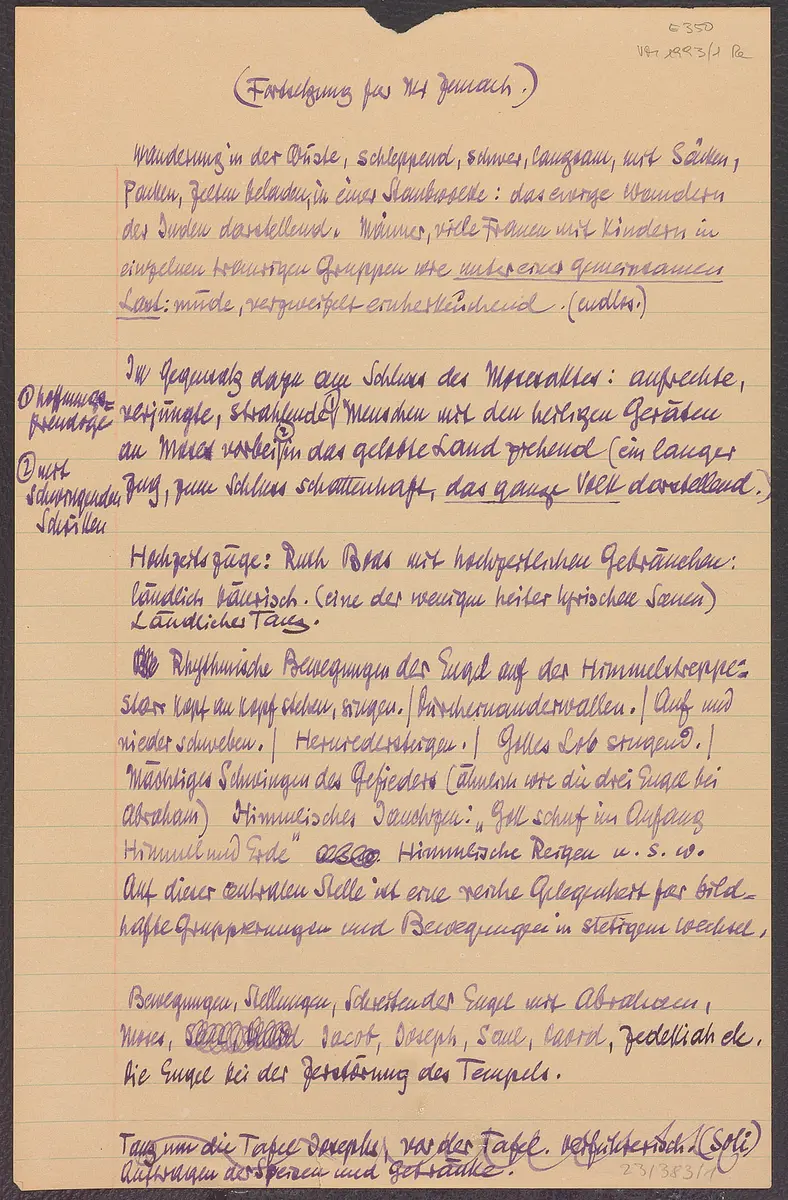 E 350
1993/1
(Fortsetzung für Mr Zemach.)
Wanderung in der Wüste, schleppend, schwer, langsam, mit Säcken,
Packen, Zelten beladen, in einer Staubwolke: das ewige Wandern
der Juden darstellend. Männer, viele Frauen mit Kindern in
einzelnen traurigen Gruppen wie unter einer gemeinsamen
Last: müde, verzweifelt einherkeuchend. (endlos.)
Im Gegensatz dazu am Schluss des Mosesaktes: aufrechte,
① hoffnungs=
freudige
verjüngte, strahlende ① Menschen mit den heiligen Geräten
an Moses vorbei ② in das gelobte Land ziehend (ein langer
② mit
schwingenden
Schritten
Zug, zum Schluss schattenhaft, das ganze Volk darstellend.)
Hochzeitszüge: Ruth Boas mit hochzeitlichen Gebräuchen:
ländlich bäurisch. (eine der wenigen heiter lyrischen Scenen)
Ländlicher Tanz.
Rhythmische Bewegungen der Engel auf der Himmelstreppe:
starr Kopf an Kopf stehen, singen. / Durcheinanderwallen. / Auf und
nieder schweben. / Herniedersteigen. / Gottes Lob singend. /
Mächtiges Schwingen des Gefieders (ähnlich wie die drei Engel bei
Abraham) Himmlisches Jauchzen: „Gott schuf im Anfang
Himmel und Erde" Himmlische Reigen u. s. w.
Auf dieser centralen Stelle ist eine reiche Gelegenheit für bild=
hafte Gruppierungen und Bewegungen in stetigem Wechsel.
Bewegungen, Stellungen, Schreiten der Engel mit Abraham,
Moses, Jacob, Joseph, Saul, David, Zedekiah etc.
Die Engel bei der Zerstörung des Tempels.
Tanz um die Tafel Josephs, vor der Tafel. verführerisch. (Soli)
Auftragen der Speisen und Getränke.
23/383/1